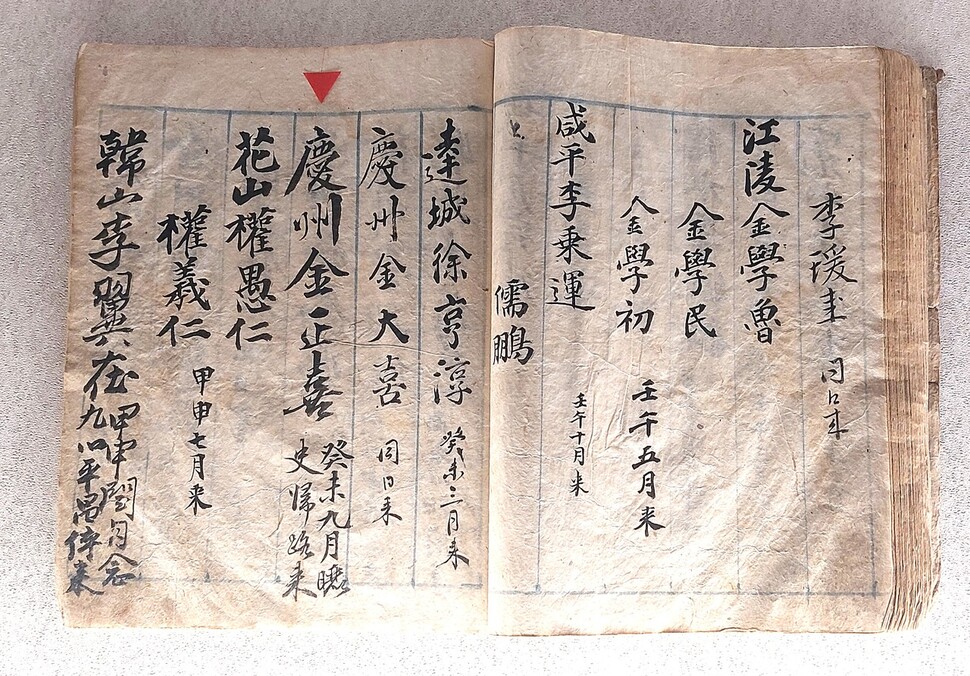 李瑗來 同日來
江陵金學魯
金學民
金學初 壬午五月來
咸平李乘運 壬午十月來
儒鵬
達城徐亨淳 癸未三月来
慶州金大喜 同日来
慶州金正喜 癸未九月曬
史歸路来
花山權愚仁
權義仁 甲申七月来
韓山李翼在 甲申閏月念
九以平
来